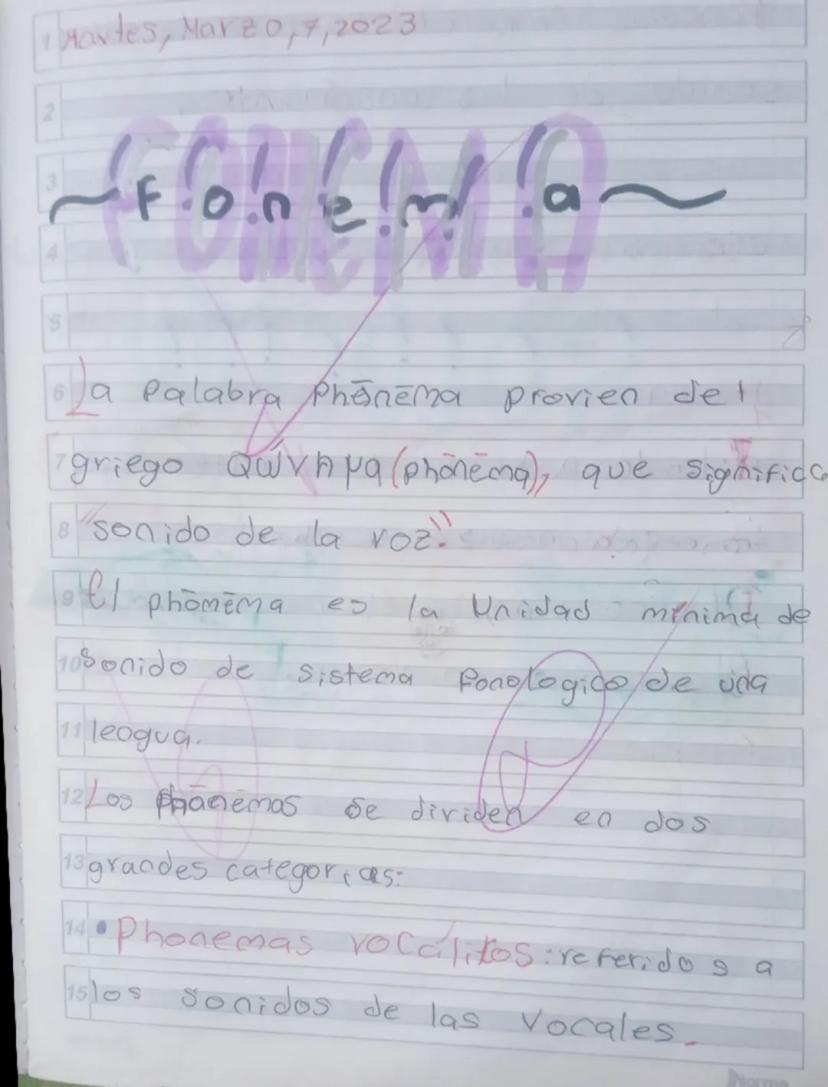 1 Martes, Marzo, 7, 2023
2
3 ~Fonema~
4
5
6 La Palabra Phōnēma provien del
7 griego Qώνημα (phōnēma), que significa
8 "sonido de la voz".
9 El phōmēma es la Unidad mínima de
10 Sonido de sistema Fonologico de una
11 lengua.
12 Los phānemas se dividen en dos
13 grandes categorias:
14 • Phonemas vocálikos: referidos a
15 los sonidos de las Vocales.
Norma